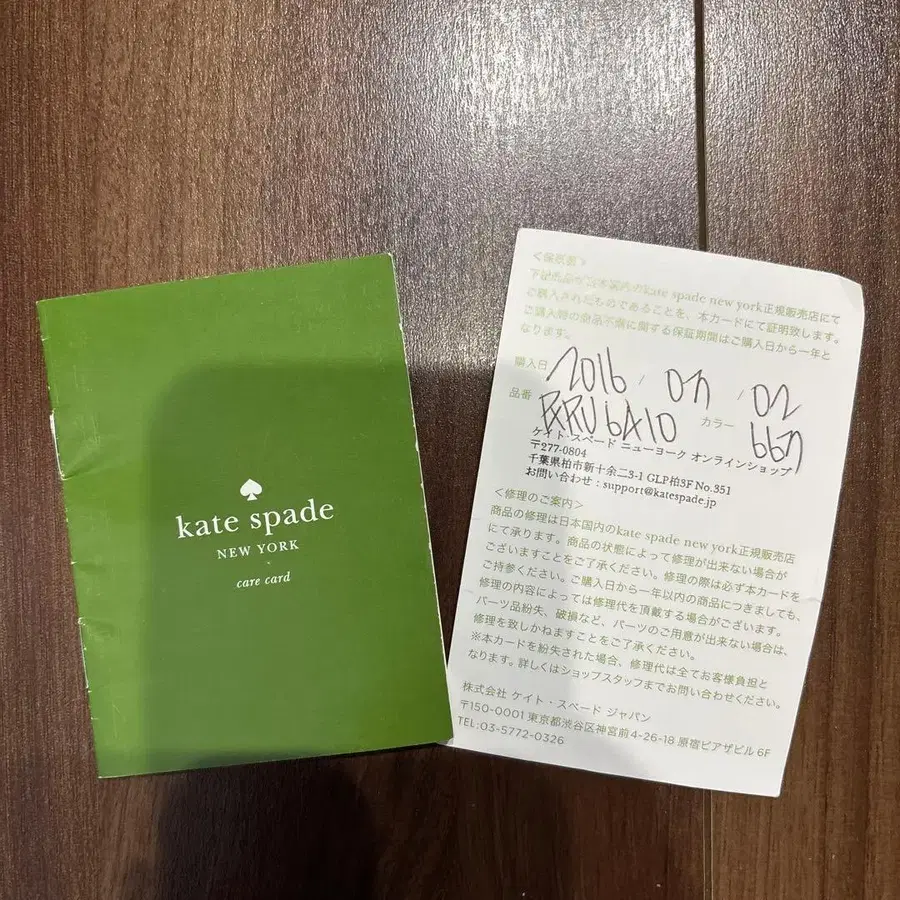 kate spade
NEW YORK
care card
<保証書>
下記商品が日本国内のkate spade new york正規販売店にて
ご購入されたものであることを、本カードにて証明致します。
ご購入時の商品不備に関する保証期間はご購入日から一年と
なります。
購入日 2016 / 07 / 02
品番 PXRU6410 カラー 667
ケイト・スペード ニューヨーク オンラインショップ
〒277-0804
千葉県柏市新十余二3-1 GLP柏3F No.351
お問い合わせ : support@katespade.jp
<修理のご案内>
商品の修理は日本国内のkate spade new york正規販売店
にて承ります。商品の状態によって修理が出来ない場合が
ございますことをご了承ください。修理の際は必ず本カードを
ご持参ください。ご購入日から一年以内の商品につきましても、
修理の内容によっては修理代を頂戴する場合がございます。
パーツ品紛失、破損など、パーツのご用意が出来ない場合は、
修理を致しかねますことをご了承ください。
※本カードを紛失された場合、修理代は全てお客様負担と
なります。詳しくはショップスタッフまでお問い合わせください。
株式会社 ケイト・スペード ジャパン
〒150-0001 東京都渋谷区神宮前4-26-18 原宿ピアザビル 6F
TEL:03-5772-0326